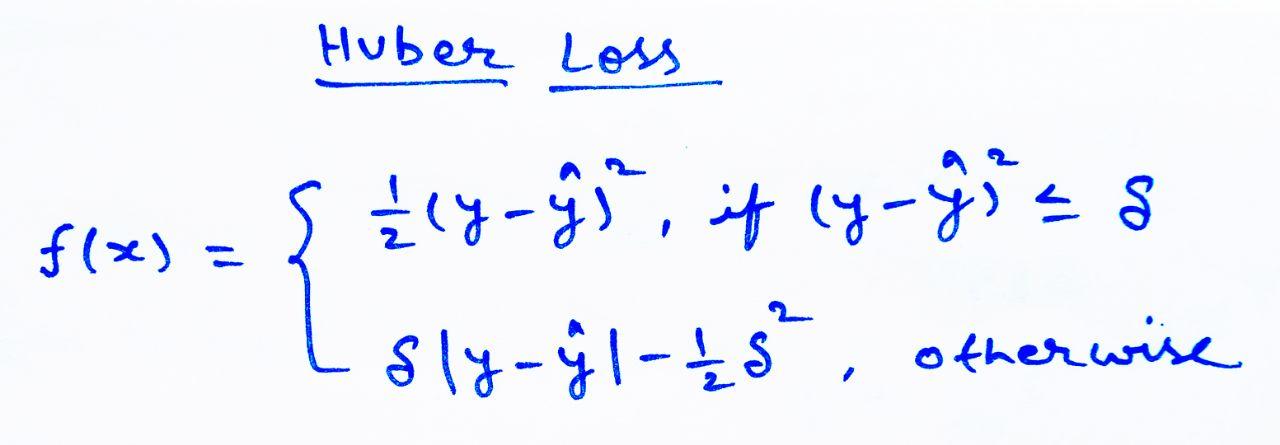 Huber Loss
f(x) = { ½(y-ŷ)², if (y-ŷ)² ≤ δ
δ|y-ŷ| - ½δ², otherwise